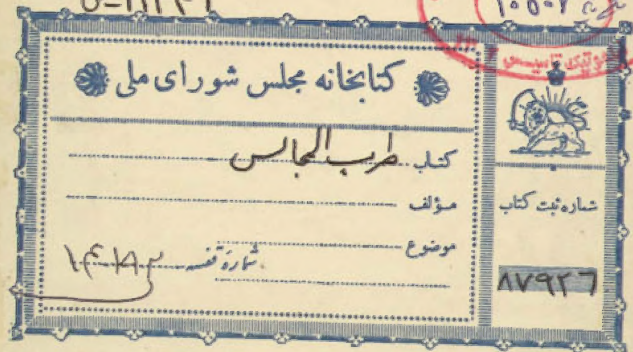 کتابخانه مجلس شورای ملی
کتاب طرب المجالس
مؤلف
موضوع
شماره قفسه
شماره ثبت کتاب
۸۷۹۲۶